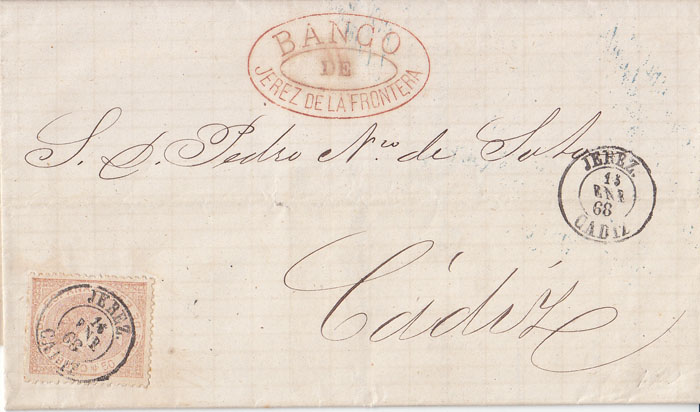 BANCO
DE
JEREZ DE LA FRONTERA
S. D. Pedro N.co de Soto
JEREZ.
15
ENE
68
CADIZ
Cádiz
JEREZ.
ENE
68
CADIZ